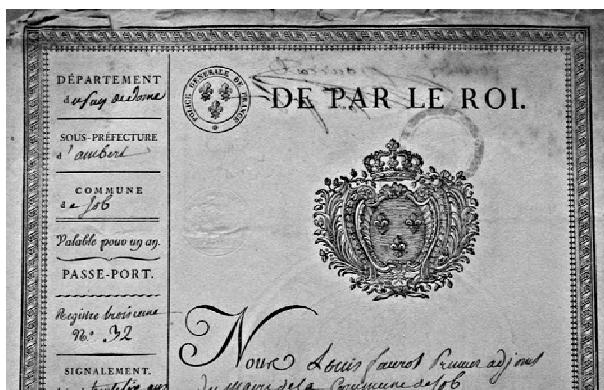 DÉPARTEMENT
du puy de dome
SOUS-PRÉFECTURE
d'ambert
COMMUNE
de Job
Valable pour un an.
PASSE-PORT.
Registre troisieme
N.º 32
SIGNALEMENT.
POLICE GENERALE DE FRANCE
DE PAR LE ROI.
Nous Louis faurot Premier adjoint
du maire de la Commune de Job